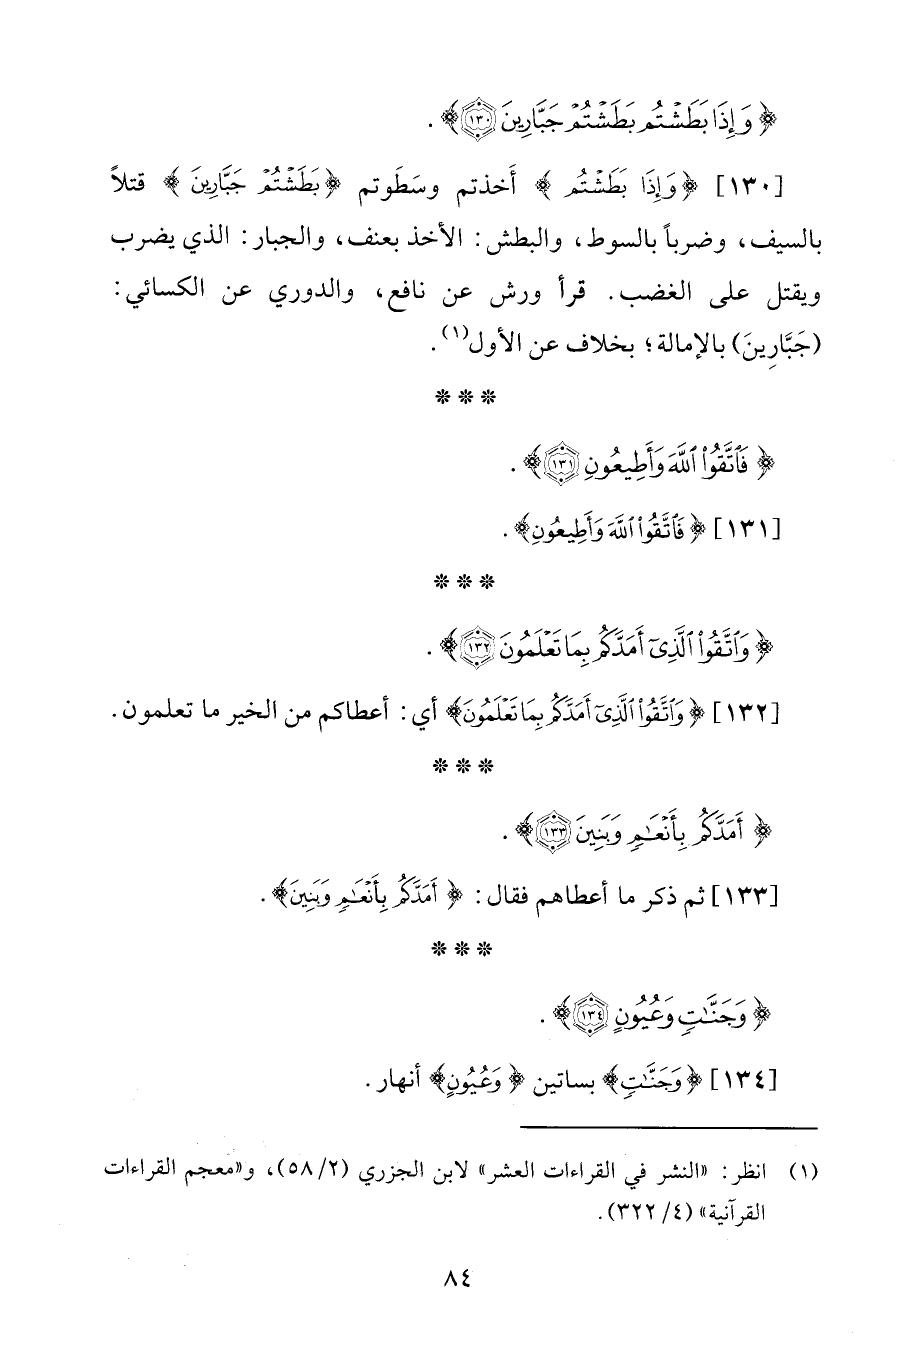 ﴿ وَإِذَا بَطَشْتُم بَطَشْتُمْ جَبَّارِينَ ١٣٠ ﴾ .
[١٣٠] ﴿ وَإِذَا بَطَشْتُم ﴾ أخذتم وسَطَوتم ﴿ بَطَشْتُمْ جَبَّارِينَ ﴾ قتلاً
بالسيف، وضرباً بالسوط، والبطش: الأخذ بعنف، والجبار: الذي يضرب
ويقتل على الغضب. قرأ ورش عن نافع، والدوري عن الكسائي:
(جَبَّارِينَ) بالإمالة؛ بخلاف عن الأول(١).
* * *
﴿ فَٱتَّقُوا۟ ٱللَّهَ وَأَطِيعُونِ ١٣١ ﴾ .
[١٣١] ﴿ فَٱتَّقُوا۟ ٱللَّهَ وَأَطِيعُونِ ﴾ .
* * *
﴿ وَٱتَّقُوا۟ ٱلَّذِىٓ أَمَدَّكُم بِمَا تَعْلَمُونَ ١٣٢ ﴾ .
[١٣٢] ﴿ وَٱتَّقُوا۟ ٱلَّذِىٓ أَمَدَّكُم بِمَا تَعْلَمُونَ ﴾ أي: أعطاكم من الخير ما تعلمون.
* * *
﴿ أَمَدَّكُم بِأَنْعَـٰمٍ وَبَنِينَ ١٣٣ ﴾ .
[١٣٣] ثم ذكر ما أعطاهم فقال: ﴿ أَمَدَّكُم بِأَنْعَـٰمٍ وَبَنِينَ ﴾ .
* * *
﴿ وَجَنَّـٰتٍ وَعُيُونٍ ١٣٤ ﴾ .
[١٣٤] ﴿ وَجَنَّـٰتٍ ﴾ بساتين ﴿ وَعُيُونٍ ﴾ أنهار.
(١) انظر: «النشر في القراءات العشر» لابن الجزري (٥٨/٢)، و«معجم القراءات
القرآنية» (٣٢٢/٤).
٨٤